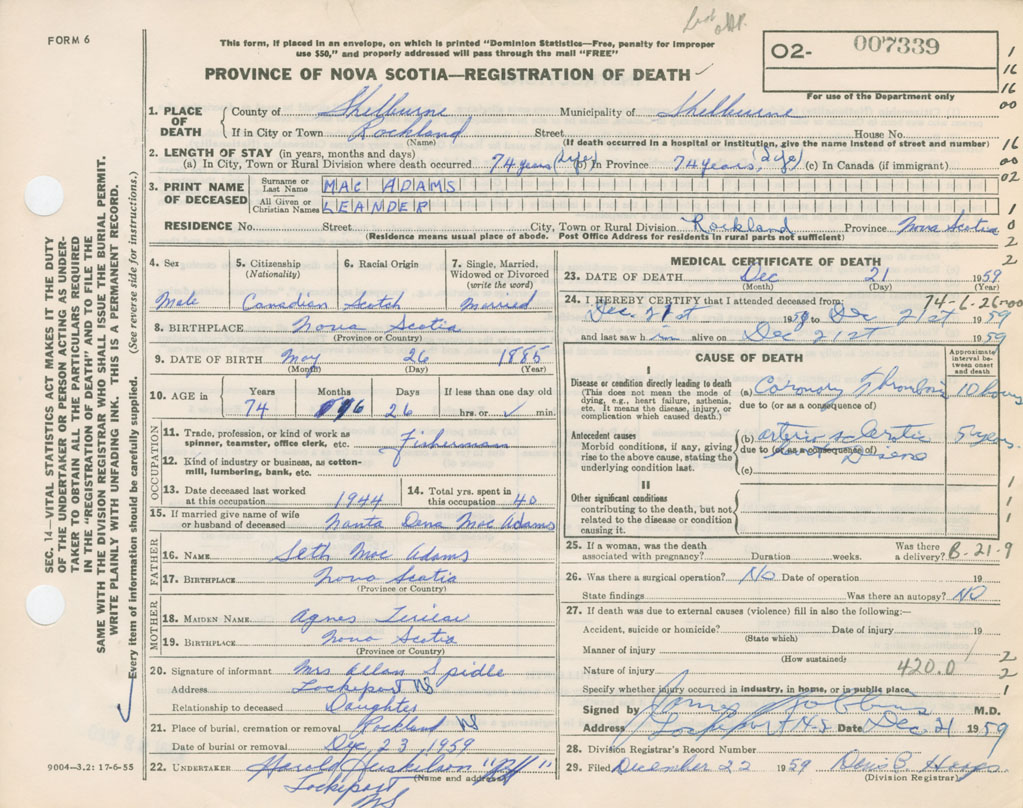 FORM 6
This form, if placed in an envelope, on which is printed "Dominion Statistics—Free, penalty for improper
use $50," and properly addressed will pass through the mail "FREE"
PROVINCE OF NOVA SCOTIA—REGISTRATION OF DEATH
O2- 007339
For use of the Department only
1. PLACE OF DEATH County of Shelburne Municipality of Shelburne
If in City or Town Rockland Street House No.
(Name) (If death occurred in a hospital or institution, give the name instead of street and number)
2. LENGTH OF STAY (in years, months and days)
(a) In City, Town or Rural Division where death occurred 74 years (b) In Province 74 years, (c) In Canada (if immigrant)
3. PRINT NAME OF DECEASED
Surname or Last Name MAC ADAMS
All Given or Christian Names LEANDER
RESIDENCE No. Street City, Town or Rural Division Rockland Province Nova Scotia
(Residence means usual place of abode. Post Office Address for residents in rural parts not sufficient)
4. Sex
Male
5. Citizenship
(Nationality)
Canadian
6. Racial Origin
Scotch
7. Single, Married,
Widowed or Divorced
(write the word)
Married
8. BIRTHPLACE Nova Scotia
(Province or Country)
9. DATE OF BIRTH May 26 1885
(Month) (Day) (Year)
10. AGE in Years Months Days If less than one day
74 6 26 hrs. or min.
OCCUPATION
11. Trade, profession, or kind of work as
spinner, teamster, office clerk, etc. Fisherman
12. Kind of industry or business, as cotton-
mill, lumbering, bank, etc.
13. Date deceased last worked
at this occupation 1944
14. Total yrs. spent in
this occupation 40
15. If married give name of wife
or husband of deceased Dena Mac Adams
FATHER
16. NAME Seth Mac Adams
17. BIRTHPLACE Nova Scotia
(Province or Country)
MOTHER
18. MAIDEN NAME Agnes
19. BIRTHPLACE Nova Scotia
(Province or Country)
20. Signature of informant Mrs Allan Spidle
Address Lockeport NS
Relationship to deceased Daughter
21. Place of burial, cremation or removal Rockland NS
Date of burial or removal Dec 23, 1959
22. UNDERTAKER Harold Huskilson
(Name and address)
Lockeport
NS
MEDICAL CERTIFICATE OF DEATH
23. DATE OF DEATH Dec 21 1959
(Month) (Day) (Year)
74-6-26
24. I HEREBY CERTIFY that I attended deceased from:
Dec. 21st 1959 to Dec 21st 1959
and last saw him alive on Dec 21st 1959
CAUSE OF DEATH
Approximate
interval be-
tween onset
and death
I
Disease or condition directly leading to death
(This does not mean the mode of
dying, e.g., heart failure, asthenia,
etc. It means the disease, injury, or
complication which caused death.)
(a) Coronary Thrombosis 10 hours
due to (or as a consequence of)
Antecedent causes
Morbid conditions, if any, giving
rise to the above cause, stating the
underlying condition last.
(b) arterio sclerotic 5 years
due to (or as a consequence of)
(c)
II
Other significant conditions
contributing to the death, but not
related to the disease or condition
causing it.
25. If a woman, was the death
associated with pregnancy? Duration weeks. Was there
a delivery? B-21-9
26. Was there a surgical operation? NO Date of operation 19
State findings Was there an autopsy? NO
27. If death was due to external causes (violence) fill in also the following:—
Accident, suicide or homicide? Date of injury 19
(State which)
Manner of injury
(How sustained)
Nature of injury 420.0
Specify whether injury occurred in industry, in home, or in public place
Signed by M.D.
Address Lockeport N.S Date Dec 21 1959
28. Division Registrar's Record Number
29. Filed December 22 1959
(Division Registrar)
SEC. 14—VITAL STATISTICS ACT MAKES IT THE DUTY
OF THE UNDERTAKER OR PERSON ACTING AS UNDER-
TAKER TO OBTAIN ALL THE PARTICULARS REQUIRED
IN THE "REGISTRATION OF DEATH" AND TO FILE THE
SAME WITH THE DIVISION REGISTRAR WHO SHALL ISSUE THE BURIAL PERMIT.
WRITE PLAINLY WITH UNFADING INK. THIS IS A PERMANENT RECORD.
Every item of information should be carefully supplied. (See reverse side for instructions.)
9004—3.2: 17-6-55
1
16
16
00
16
00
02
1
0
2
2
1
1
1
1
2
2
1